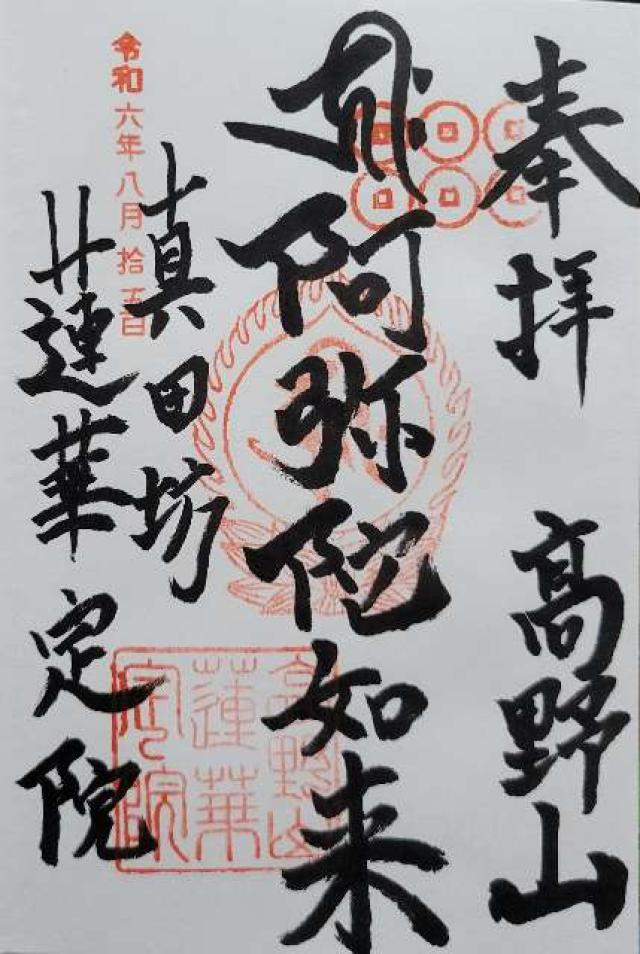 奉拝 高野山
阿弥陀如来
真田坊
蓮華定院
令和六年八月拾五日
高野山
蓮華
定院